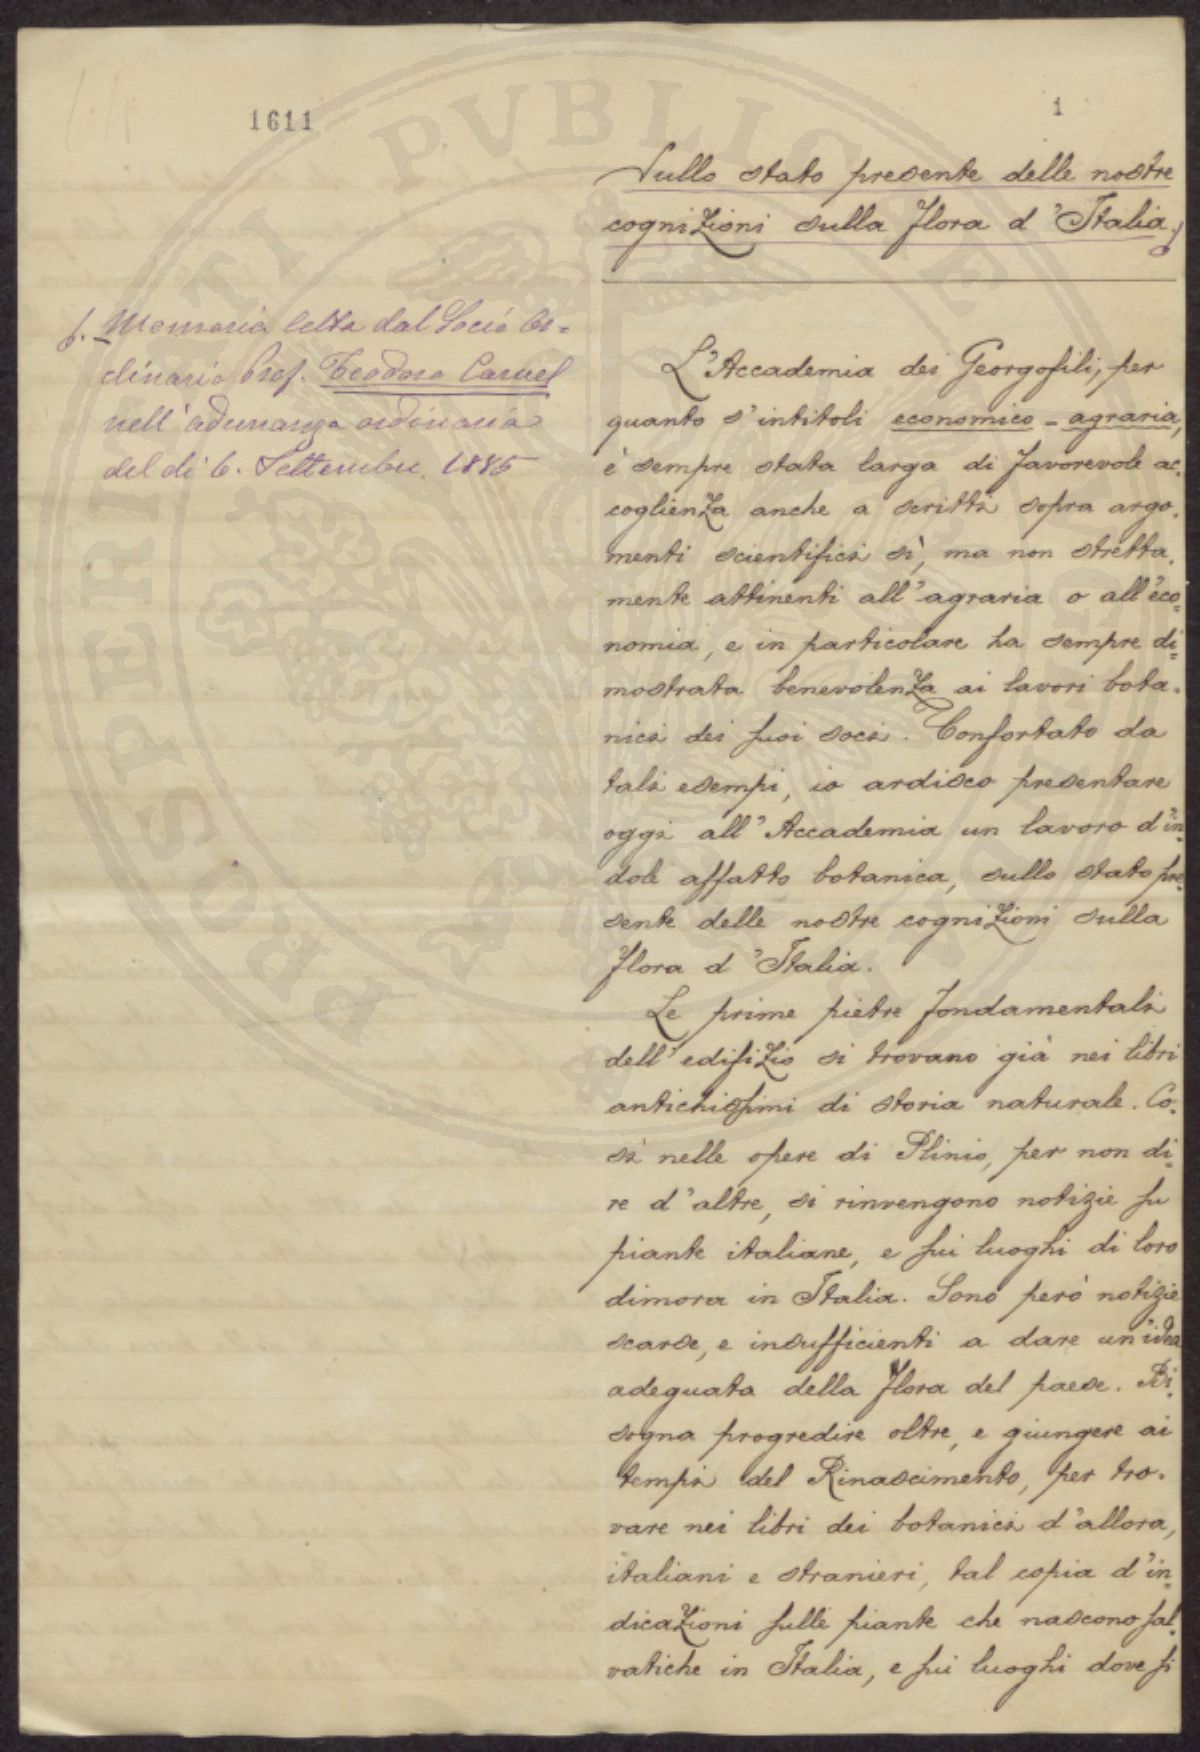 1611
1
Sullo stato presente delle nostre
cognizioni sulla flora d'Italia.
f. Memoria letta dal Socio Or=
dinario Prof. Teodoro Caruel
nell'adunanza ordinaria
del dì 6. Settembre 1885
L'Accademia dei Georgofili, per
quanto s'intitoli economico-agraria,
è sempre stata larga di favorevole ac-
coglienza anche a scritti sopra argo-
menti scientifici sì, ma non stretta-
mente attinenti all'agraria o all'eco=
nomia, e in particolare ha sempre di=
mostrata benevolenza ai lavori bota-
nici dei suoi soci. Confortato da
tali esempi, io ardisco presentare
oggi all'Accademia un lavoro d'in-
dole affatto botanica, sullo stato pre
sente delle nostre cognizioni sulla
flora d'Italia.
Le prime pietre fondamentali
dell'edifizio si trovano già nei libri
antichissimi di storia naturale. Co-
sì nelle opere di Plinio, per non di-
re d'altre, si rinvengono notizie su
piante italiane, e sui luoghi di loro
dimora in Italia. Sono però notizie
scarse, e insufficienti a dare un'idea
adeguata della flora del paese. Bi-
sogna progredire oltre, e giungere ai
tempi del Rinascimento, per tro-
vare nei libri dei botanici d'allora,
italiani e stranieri, tal copia d'in=
dicazioni sulle piante che nascono sal-
vatiche in Italia, e sui luoghi dove si
PROSPERITATI PVBLICAE